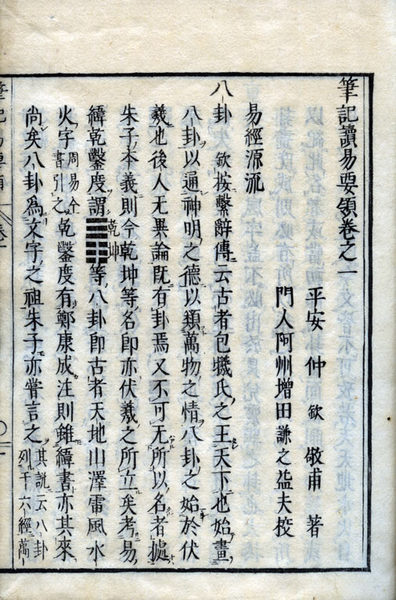 筆記讀易要領卷之一
平安 仲 欽 敬甫 著
門人阿州增田謙之益夫校
易經源流
八卦 欽按繫辭傳云古者包犧氏之王天下也始畫
八卦以通神明之德以類萬物之情八卦之始於伏
羲也後人无異論既有卦焉又不可无所以名者據
朱子本義則今乾坤等名即亦伏羲之所立矣考易
緯乾鑿度謂☰乾☷坤等八卦即古者天地山澤雷風水
火字周易全書引之乾鑿度有鄭康成注則雖緯書亦其來
尚矣八卦為文字之祖朱子亦嘗言之其說云八卦列于六經萬